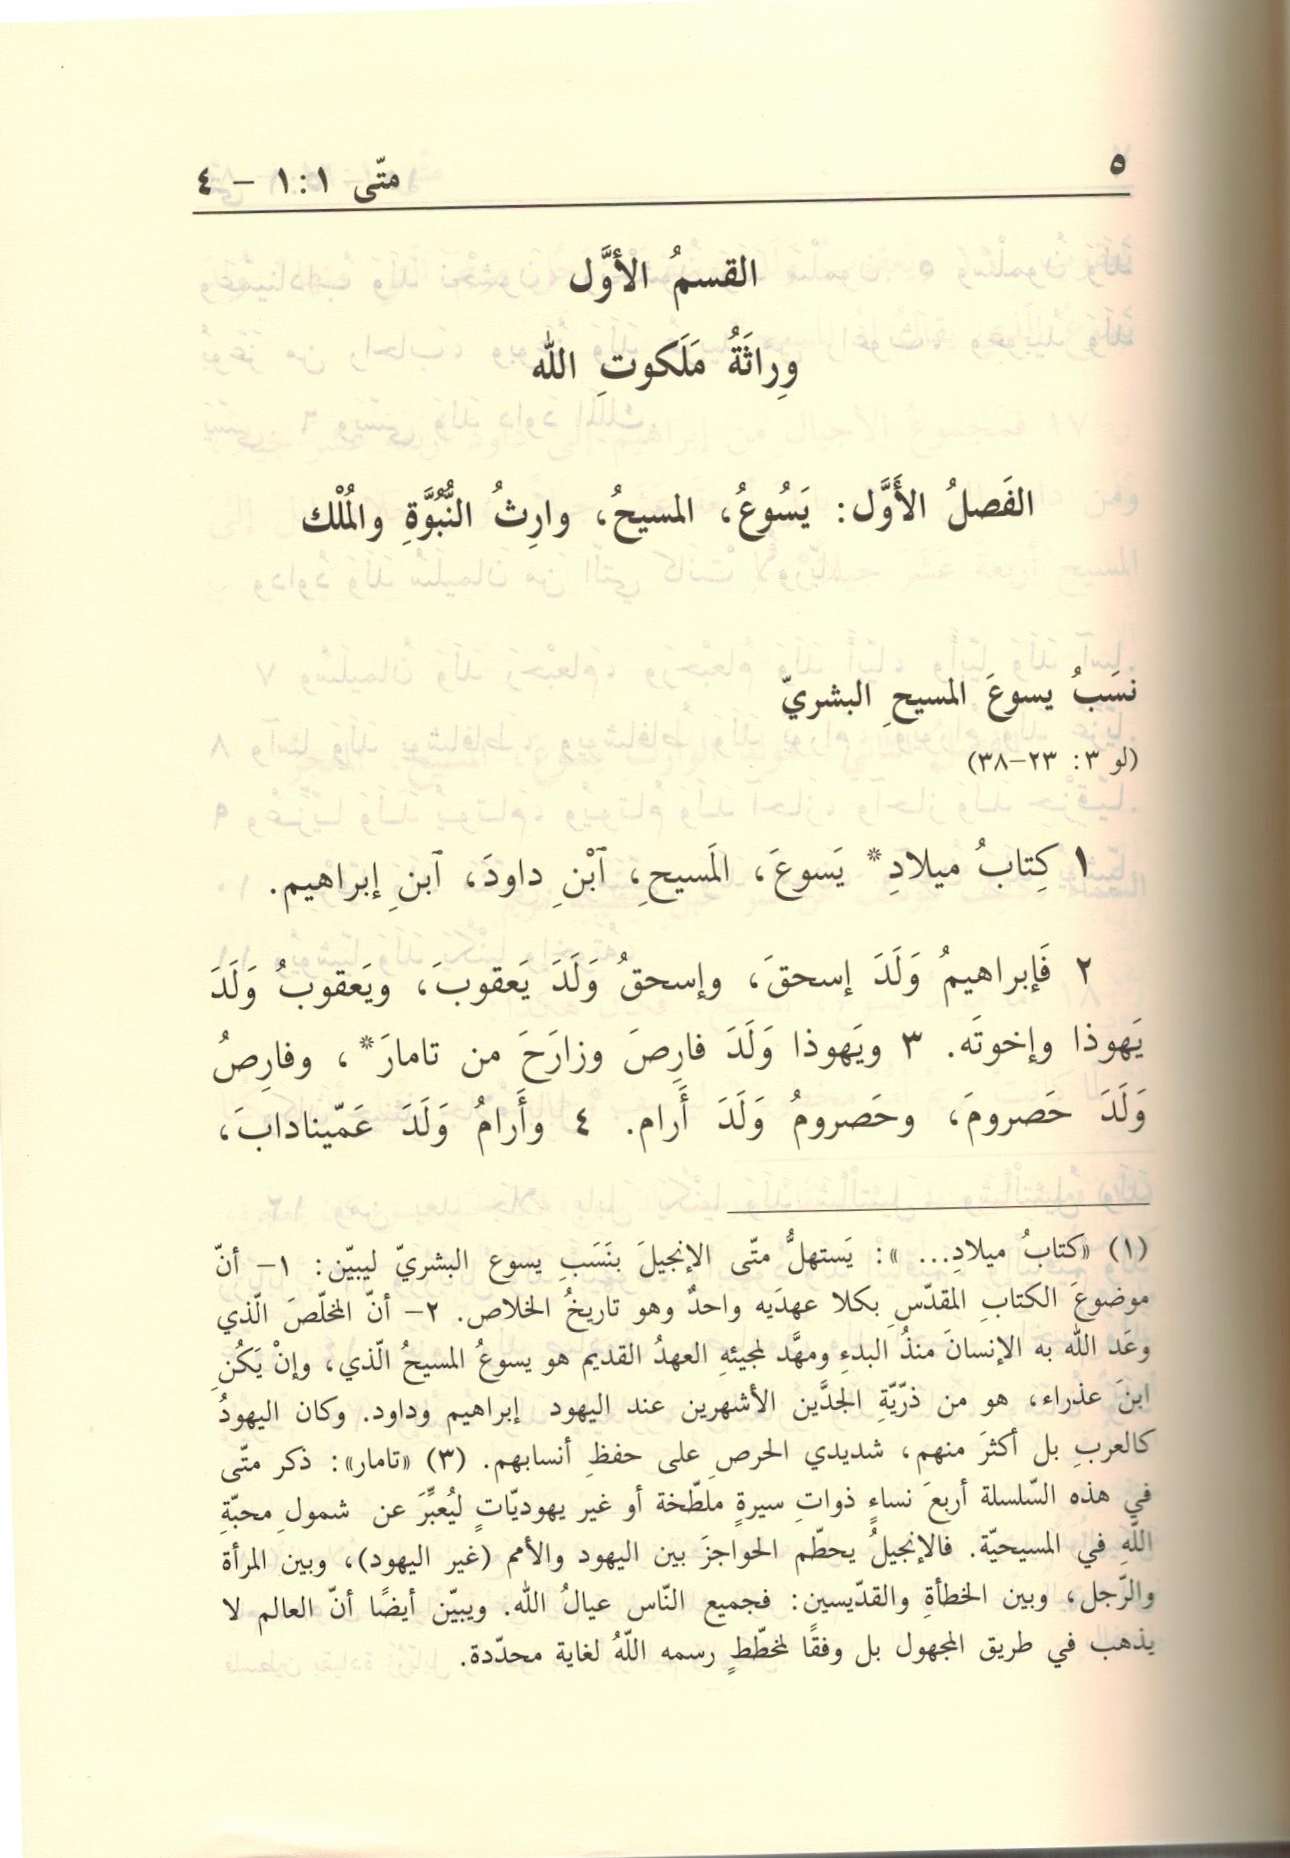 ٥
متّى ١:١ – ٤
القسمُ الأوَّل
وِراثَةُ مَلَكوتِ الله
الفَصلُ الأَوَّل: يَسُوعُ، المسيحُ، وارِثُ النُّبُوَّةِ والمُلْك
نسَبُ يسوعَ المسيحِ البشريّ
(لو ٣: ٢٣–٣٨)
١ كِتابُ ميلادِ* يَسوعَ، المَسيحِ، ٱبْنِ داودَ، ٱبنِ إبراهيم.
٢ فَإبراهيمُ وَلَدَ إسحقَ، وإسحقُ وَلَدَ يَعقوبَ، ويَعقوبُ وَلَدَ
يَهوذا وإخوتَه. ٣ ويَهوذا وَلَدَ فارِصَ وزارَحَ من تامارَ*، وفارِصُ
وَلَدَ حَصرومَ، وحَصرومُ وَلَدَ أَرام. ٤ وأَرامُ وَلَدَ عَمّينادابَ،
(١) «كتابُ ميلادِ... »: يَستهلُّ متّى الإنجيلَ بنَسَبِ يسوع البشريّ ليبيّن: ١– أنّ
موضوعَ الكتابِ المقدّسِ بكلا عهدَيه واحدٌ وهو تاريخُ الخلاص. ٢– أنّ المخلّصَ الّذي
وعَد الله به الإنسانَ منذُ البدءِ ومهَّد لمجيئهِ العهدُ القديم هو يسوعُ المسيحُ الّذي، وإنْ يَكُنِ
ابنَ عذراء، هو من ذرّيّةِ الجدَّين الأشهرين عند اليهود إبراهيم وداود. وكان اليهودُ
كالعربِ بل أكثرَ منهم، شديدي الحرصِ على حفظِ أنسابهم. (٣) «تامار»: ذكر متّى
في هذه السّلسلة أربعَ نساءٍ ذواتِ سيرةٍ ملطّخة أو غير يهوديّاتٍ ليُعبِّرَ عن شمولِ محبّةِ
اللّهِ في المسيحيّة. فالإنجيلُ يحطّم الحواجزَ بين اليهود والأمم (غير اليهود)، وبين المرأة
والرّجل، وبين الخطأةِ والقدّيسين: فجميع النّاس عيالُ الله. ويبيّن أيضًا أنّ العالم لا
يذهب في طريق المجهول بل وفقًا لمخطّطٍ رسمه اللّهُ لغاية محدّدة.